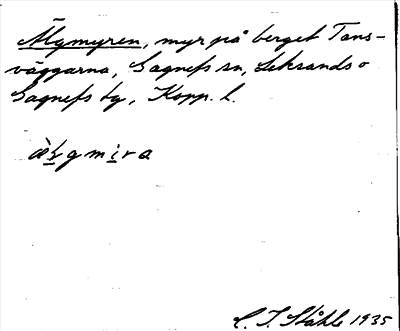 Älgmyren, myr på berget Tans-
väggarna, Gagnefs sn, Leksands o
Gagnefs tg, Kopp. l.
æ̀lgmira
C. I. Ståhle 1935